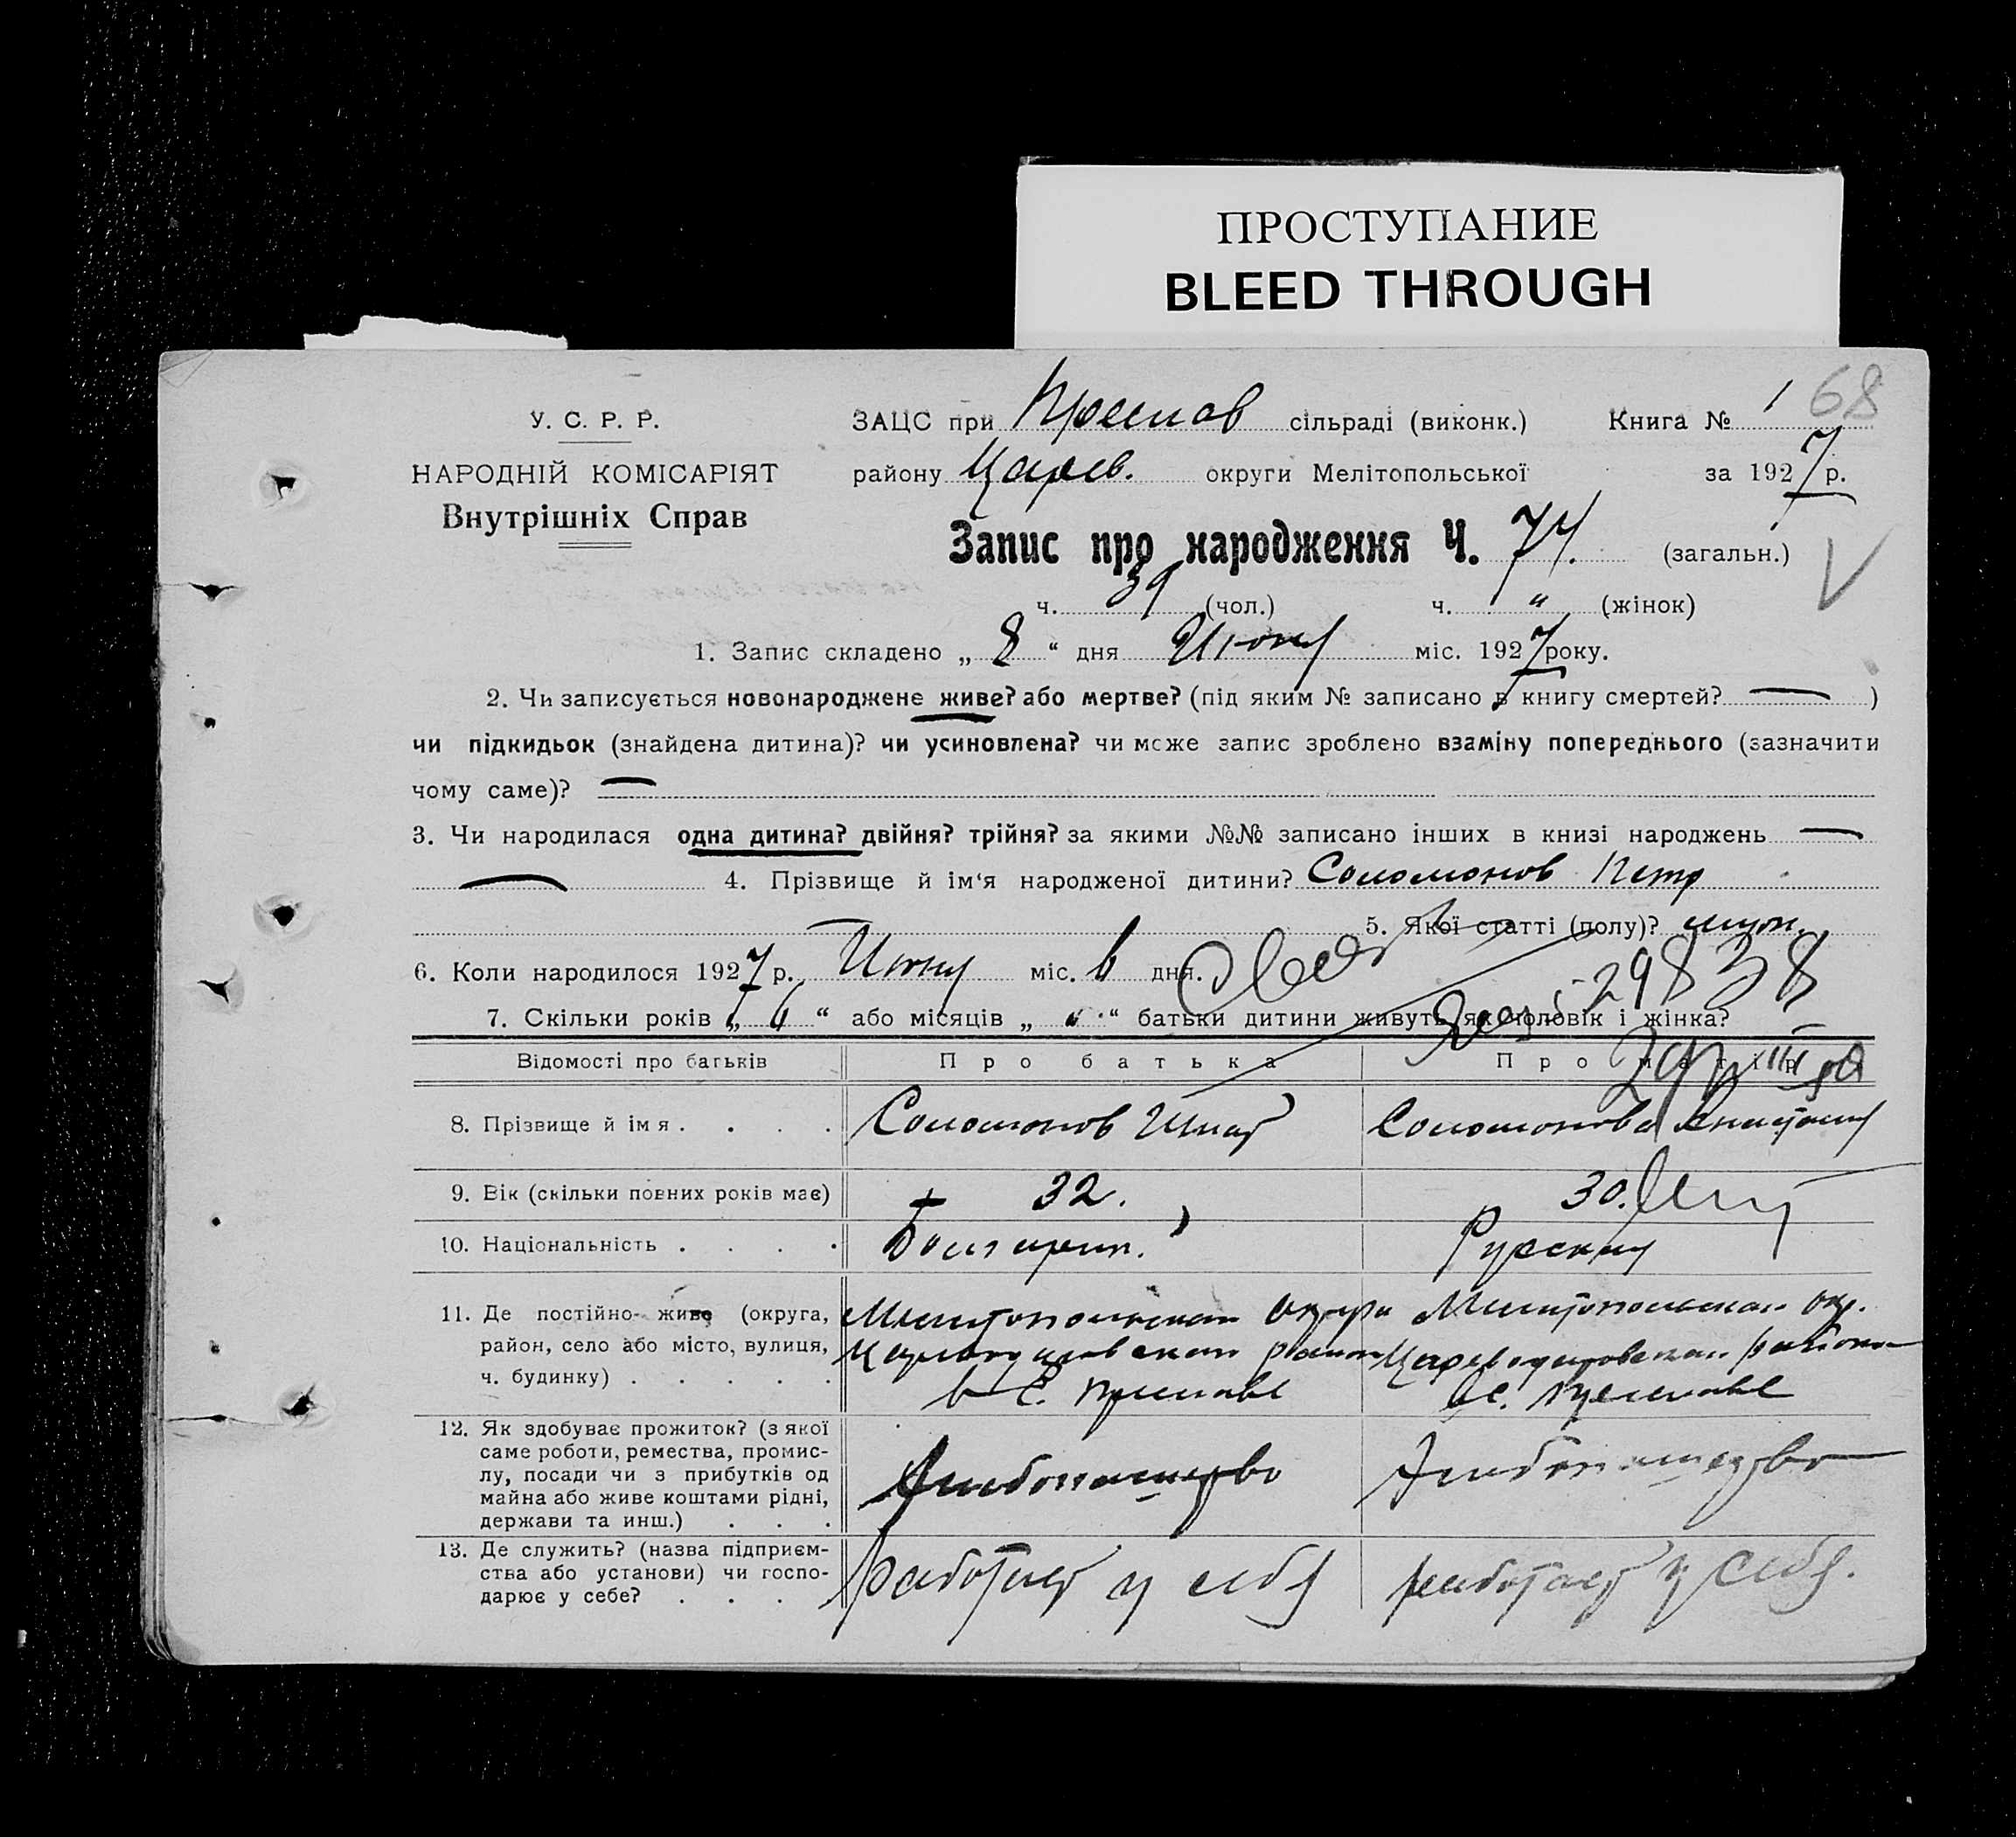 ПРОСТУПАНИЕ
BLEED THROUGH
У. С. Р. Р.
НАРОДНІЙ КОМІСАРІЯТ
Внутрішніх Справ
ЗАЦС при Преслав сільраді (виконк.) Книга № 1 68
району Царев. округи Мелітопольської за 1927 р.
Запис про народження Ч. 74. (загальн.)
ч. 39 (чол.) ч. " (жінок)
1. Запис складено „ 8 “ дня Июня міс. 1927 року.
2. Чи записується новонароджене живе? або мертве? (під яким № записано в книгу смертей? — )
чи підкидьок (знайдена дитина)? чи усиновлена? чи може запис зроблено взаміну попереднього (зазначити
чому саме)? —
3. Чи народилася одна дитина? двійня? трійня? за якими №№ записано інших в книзі народжень —
— 4. Прізвище й ім‘я народженої дитини? Соломонов Петр
5. Якої статті (полу)? муж.
6. Коли народилося 1927 р. Июня міс. 6 дня.
29838
7. Скільки років „ 6 “ або місяців „ " “ батьки дитини живуть як чоловік і жінка?
Відомості про батьків Про батька Про матір
8. Прізвище й імя . . . . Соломонов Соломонова Анастасия
9. Вік (скільки повних років має) 32. 30.
10. Національність . . . . Болгарин. Русская
11. Де постійно живе (округа, Мелитопольской Округи Мелитопольской Окр.
район, село або місто, вулиця, Цареводаровского района Цареводаровского района
ч. будинку) . . . . . в С. Преславе С. Преславе
12. Як здобуває прожиток? (з якої
саме роботи, ремества, промис-
лу, посади чи з прибутків од Хлебопашество Хлебопашество
майна або живе коштами рідні,
держави та инш.) . . .
13. Де служить? (назва підприєм-
ства або установи) чи госпо- работает у себя работает у себя.
дарює у себе? . . . .